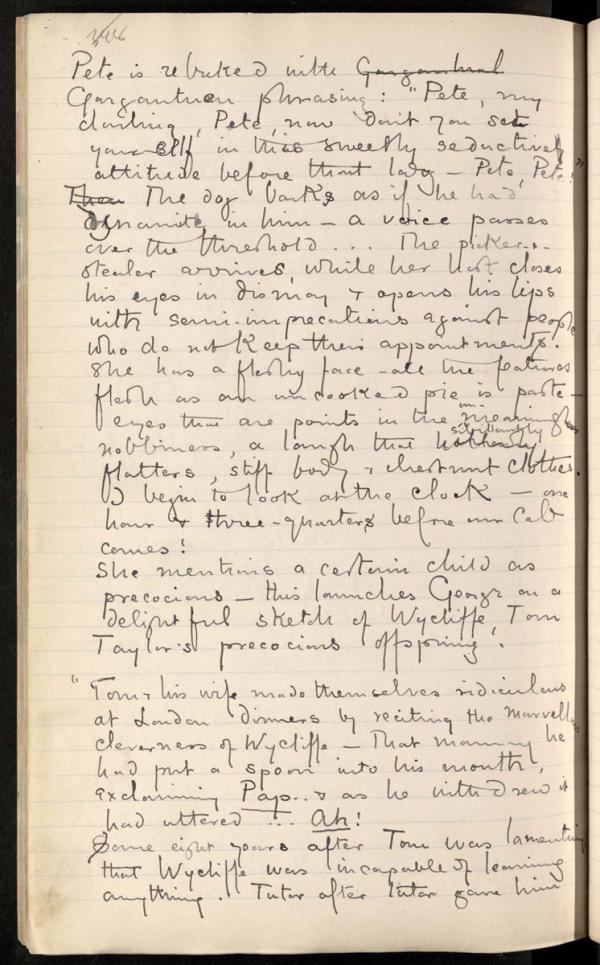 Pete is rebuked with Gargantual
Gargantuan phrasing: "Pete, my
darling, Pete, now don't you set
yourself in this sweetly seductively
attitude before that lady – Pete, Pete!"
Then The dog barks as if he had
dynamite in him – a voice passes
over the threshold ... The picker-&-
stealer arrives, while her host closes
his eyes in dismay & opens his lips
with semi-imprecations against people
who do not keep their appointments.
She has a fleshy face – all the features
flesh as an uncooked pie is paste –
eyes that are points in the meaningless
nobbiness, a laugh that sibilantly
flatters, stiff body & chestnut clothes.
I begin to look at the clock – one
hour & three-quarters before our cab
comes!
She mentions a certain child as
precocious – this launches George on a
delightful sketch of Wycliffe, Tom
Taylor's precocious offspring.
"Tom & his wife made themselves ridiculous
at London dinners by reciting the marvellous
cleverness of Wycliffe – That morning he
had put a spoon into his mouth,
exclaiming Pap.. & as he withdrew it
had uttered ... Ah!
Some eight years after Tom was lamenting
that Wycliffe was incapable of learning
anything. Tutor after tutor gave him